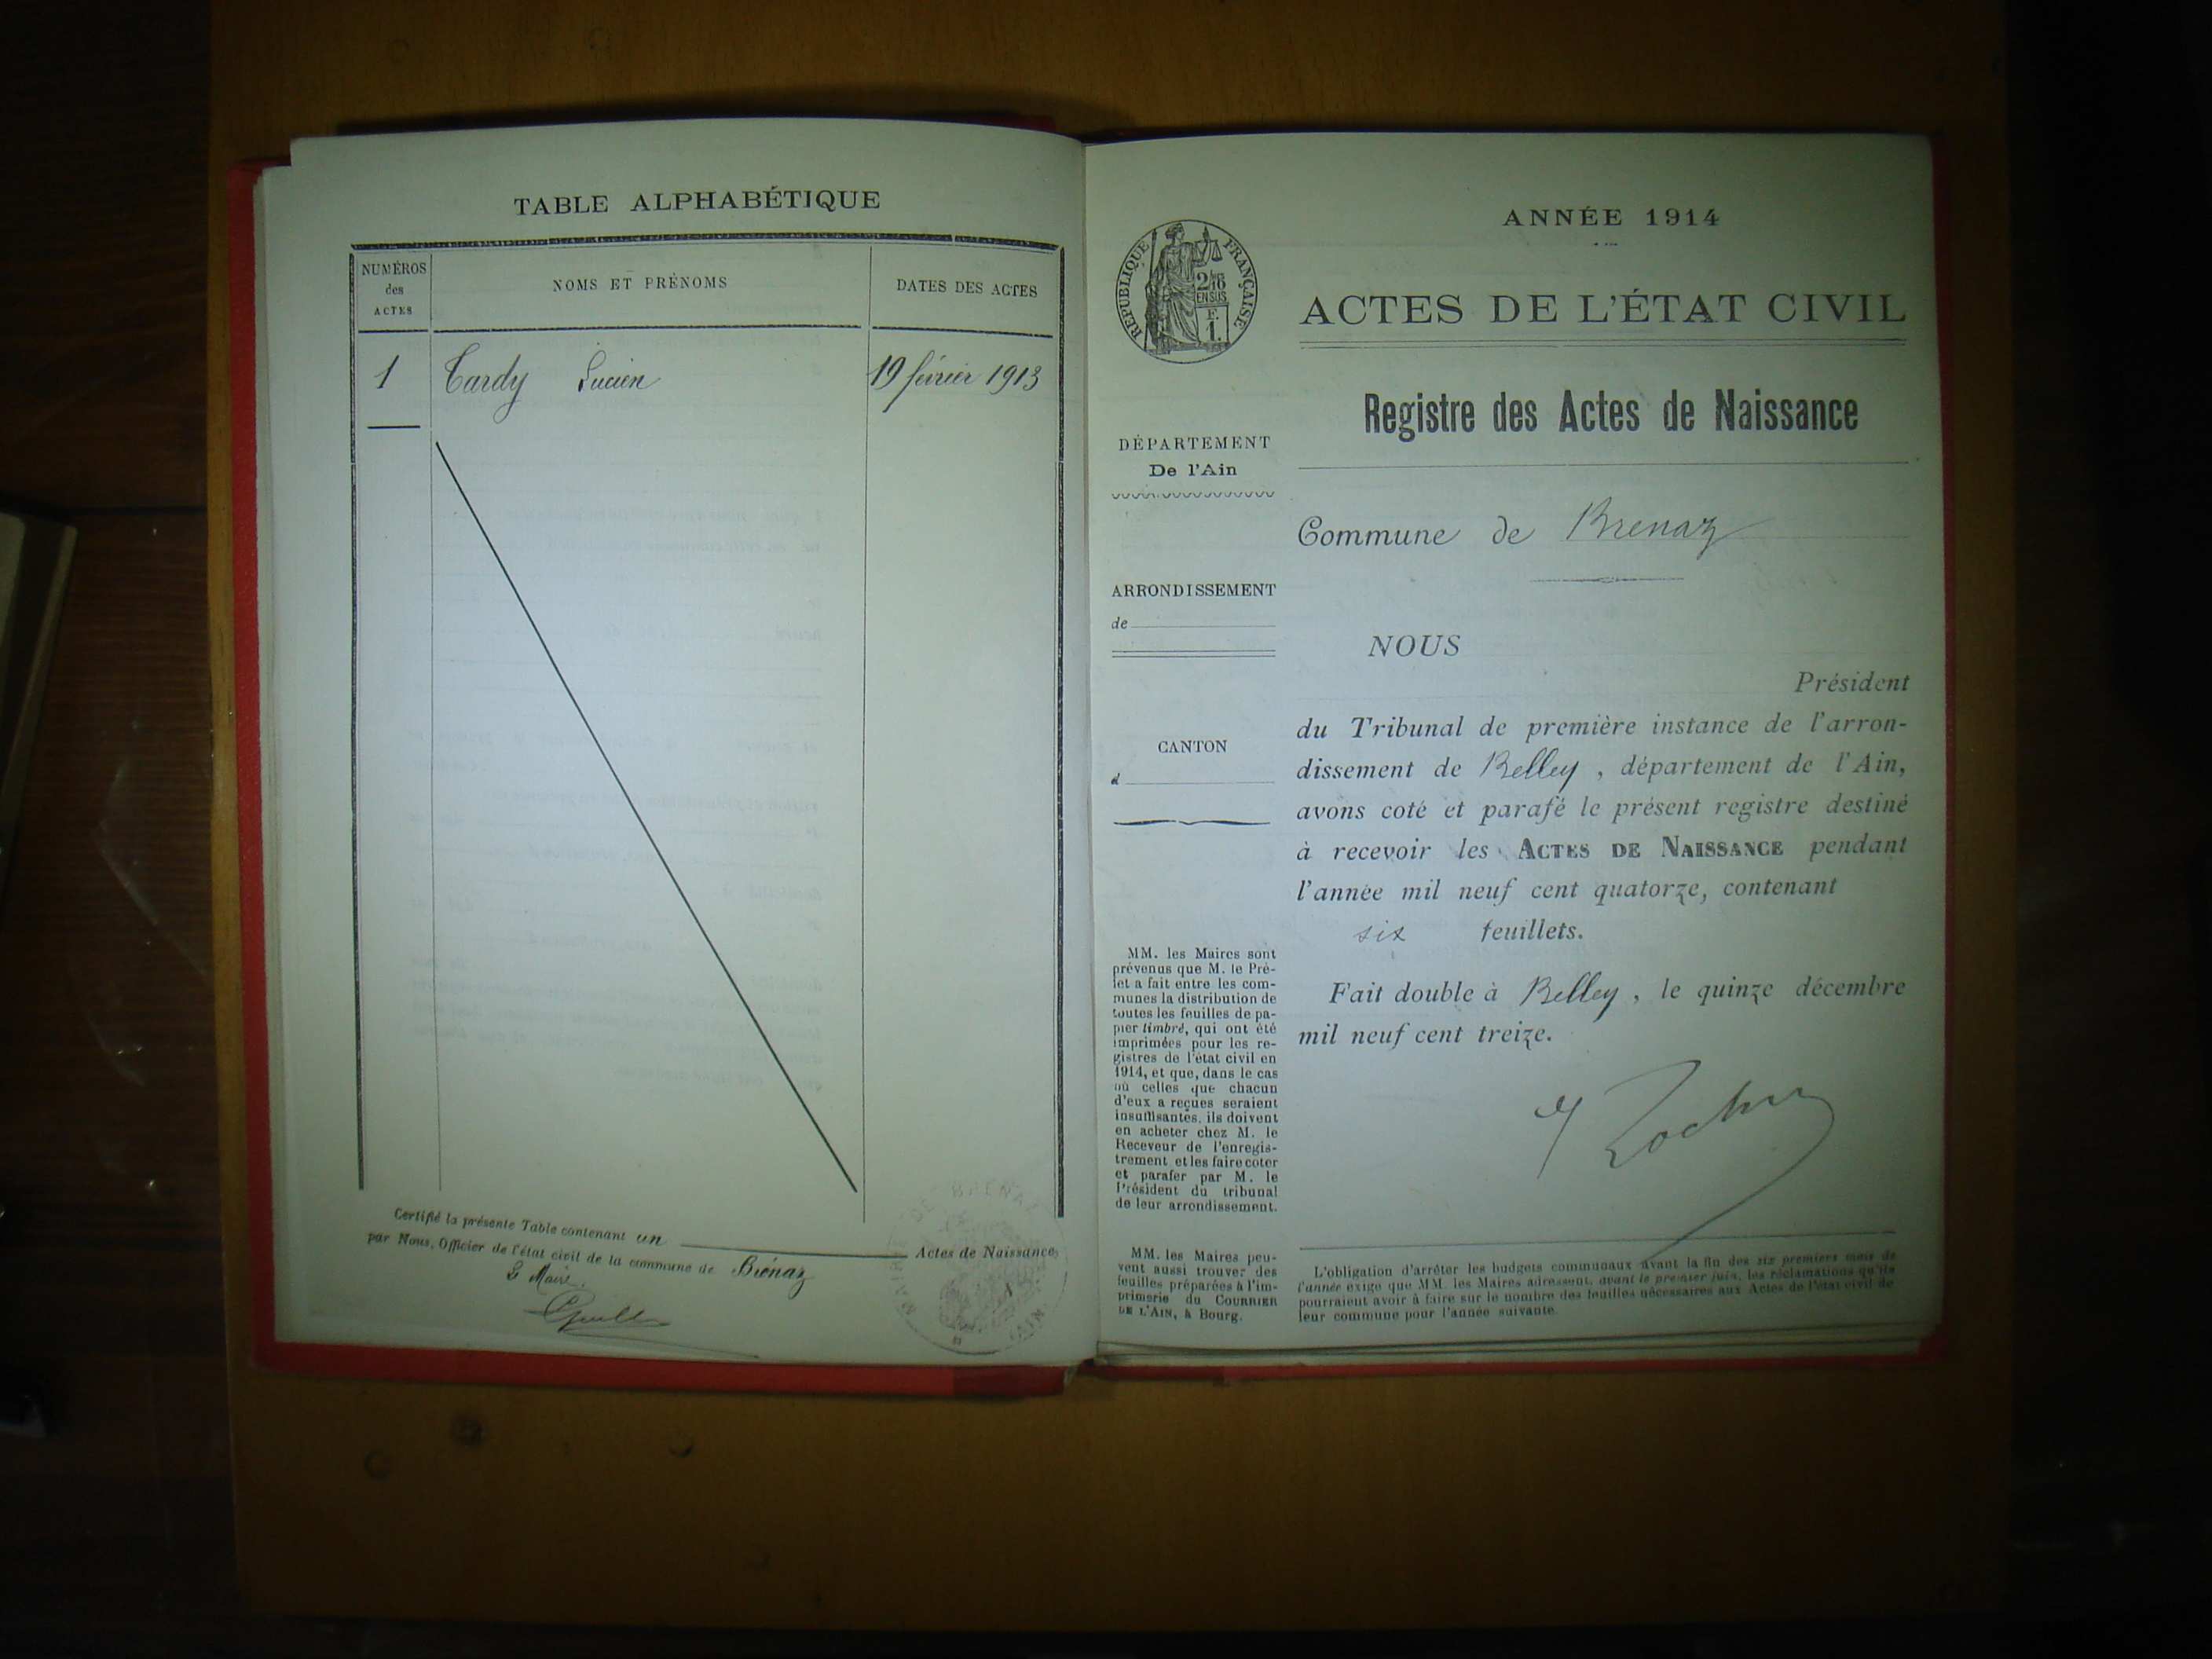 TABLE ALPHABÉTIQUE
NUMÉROS
des
ACTES
NOMS ET PRÉNOMS
DATES DES ACTES
1 Tardy Lucien 19 février 1913
Certifié la présente Table contenant un Actes de Naissance,
par Nous, Officier de l'état civil de la commune de Brénaz
Le Maire
MAIRIE DE BRENAZ
AIN
RÉPUBLIQUE FRANÇAISE
2/10
EN SUS
F.
1.
DÉPARTEMENT
De l'Ain
ARRONDISSEMENT
de
CANTON
d
MM. les Maires sont
prévenus que M. le Pré-
fet a fait entre les com-
munes la distribution de
toutes les feuilles de pa-
pier timbré, qui ont été
imprimées pour les re-
gistres de l'état civil en
1914, et que, dans le cas
où celles que chacun
d'eux a reçues seraient
insuffisantes, ils doivent
en acheter chez M. le
Receveur de l'enregis-
trement et les faire coter
et parafer par M. le
Président du tribunal
de leur arrondissement.
MM. les Maires peu-
vent aussi trouver des
feuilles préparées à l'im-
primerie du COURRIER
DE L'AIN, à Bourg.
ANNÉE 1914
ACTES DE L'ÉTAT CIVIL
Registre des Actes de Naissance
Commune de Brenaz
NOUS
Président
du Tribunal de première instance de l'arron-
dissement de Belley, département de l'Ain,
avons coté et parafé le présent registre destiné
à recevoir les ACTES DE NAISSANCE pendant
l'année mil neuf cent quatorze, contenant
six feuillets.
Fait double à Belley, le quinze décembre
mil neuf cent treize.
L'obligation d'arrêter les budgets communaux avant la fin des six premiers mois de
l'année exige que MM. les Maires adressent, avant le premier juin, les réclamations qu'ils
pourraient avoir à faire sur le nombre des feuilles nécessaires aux Actes de l'état civil de
leur commune pour l'année suivante.